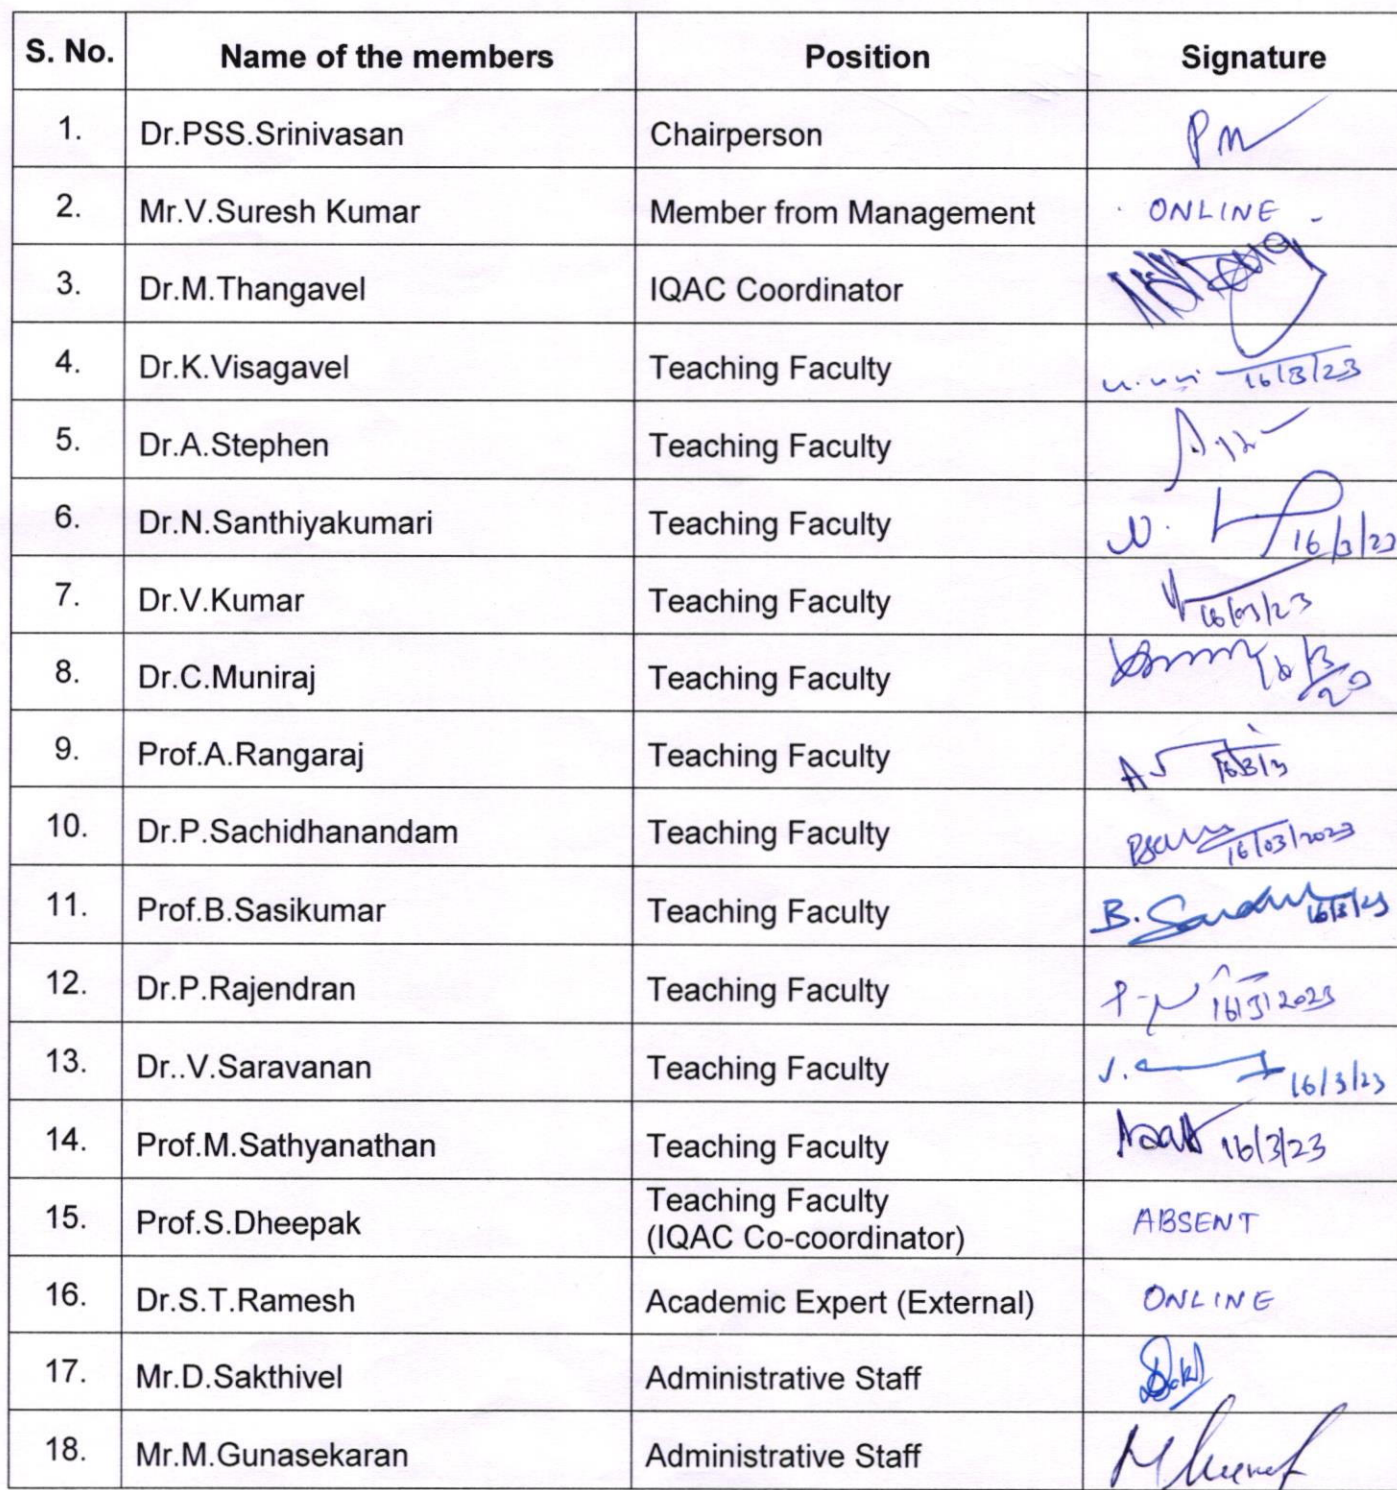 S. No. Name of the members Position Signature
1. Dr.PSS.Srinivasan Chairperson
2. Mr.V.Suresh Kumar Member from Management ONLINE
3. Dr.M.Thangavel IQAC Coordinator
4. Dr.K.Visagavel Teaching Faculty 16/3/23
5. Dr.A.Stephen Teaching Faculty
6. Dr.N.Santhiyakumari Teaching Faculty N. 16/3/23
7. Dr.V.Kumar Teaching Faculty 16/03/23
8. Dr.C.Muniraj Teaching Faculty
9. Prof.A.Rangaraj Teaching Faculty
10. Dr.P.Sachidhanandam Teaching Faculty 16/03/2023
11. Prof.B.Sasikumar Teaching Faculty B. 16/3/23
12. Dr.P.Rajendran Teaching Faculty 16/3/2023
13. Dr..V.Saravanan Teaching Faculty V. 16/3/23
14. Prof.M.Sathyanathan Teaching Faculty 16/3/23
15. Prof.S.Dheepak Teaching Faculty
(IQAC Co-coordinator) ABSENT
16. Dr.S.T.Ramesh Academic Expert (External) ONLINE
17. Mr.D.Sakthivel Administrative Staff
18. Mr.M.Gunasekaran Administrative Staff